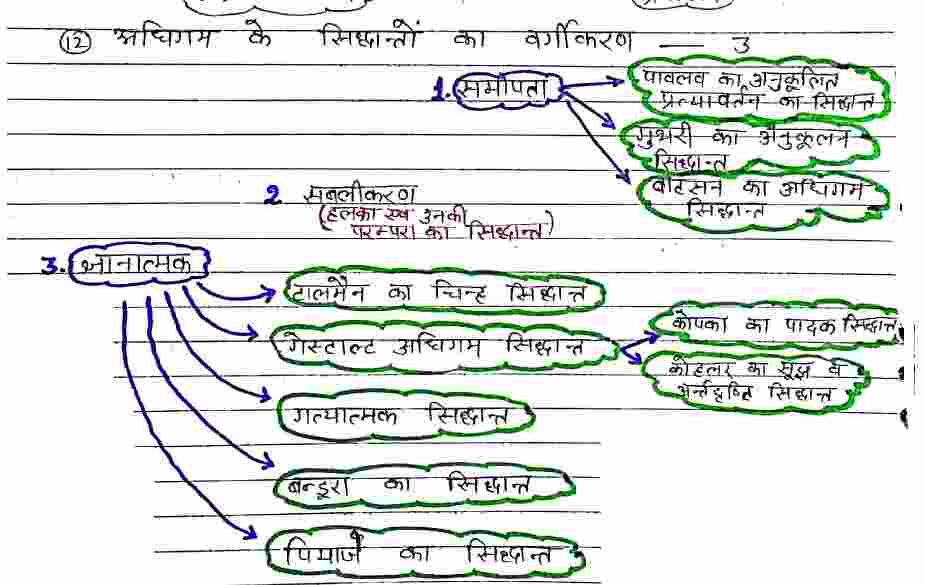 (12) अधिगम के सिद्धान्तों का वर्गीकरण — 3
1. समीपता
पावलव का अनुकूलित
प्रत्यावर्तन का सिद्धान्त
गुथरी का अनुकूलन
सिद्धान्त
वाटसन का अधिगम
सिद्धान्त
2 सबलीकरण
(हलका स्व उनकी
परम्परा का सिद्धान्त)
3. ज्ञानात्मक
टालमैन का चिन्ह सिद्धान्त
गेस्टाल्ट अधिगम सिद्धान्त
कोपका का पादक सिद्धान्त
कोहलर का सूझ व
अर्न्तदृष्टि सिद्धान्त
गत्यात्मक सिद्धान्त
बन्डूरा का सिद्धान्त
पियाजे का सिद्धान्त